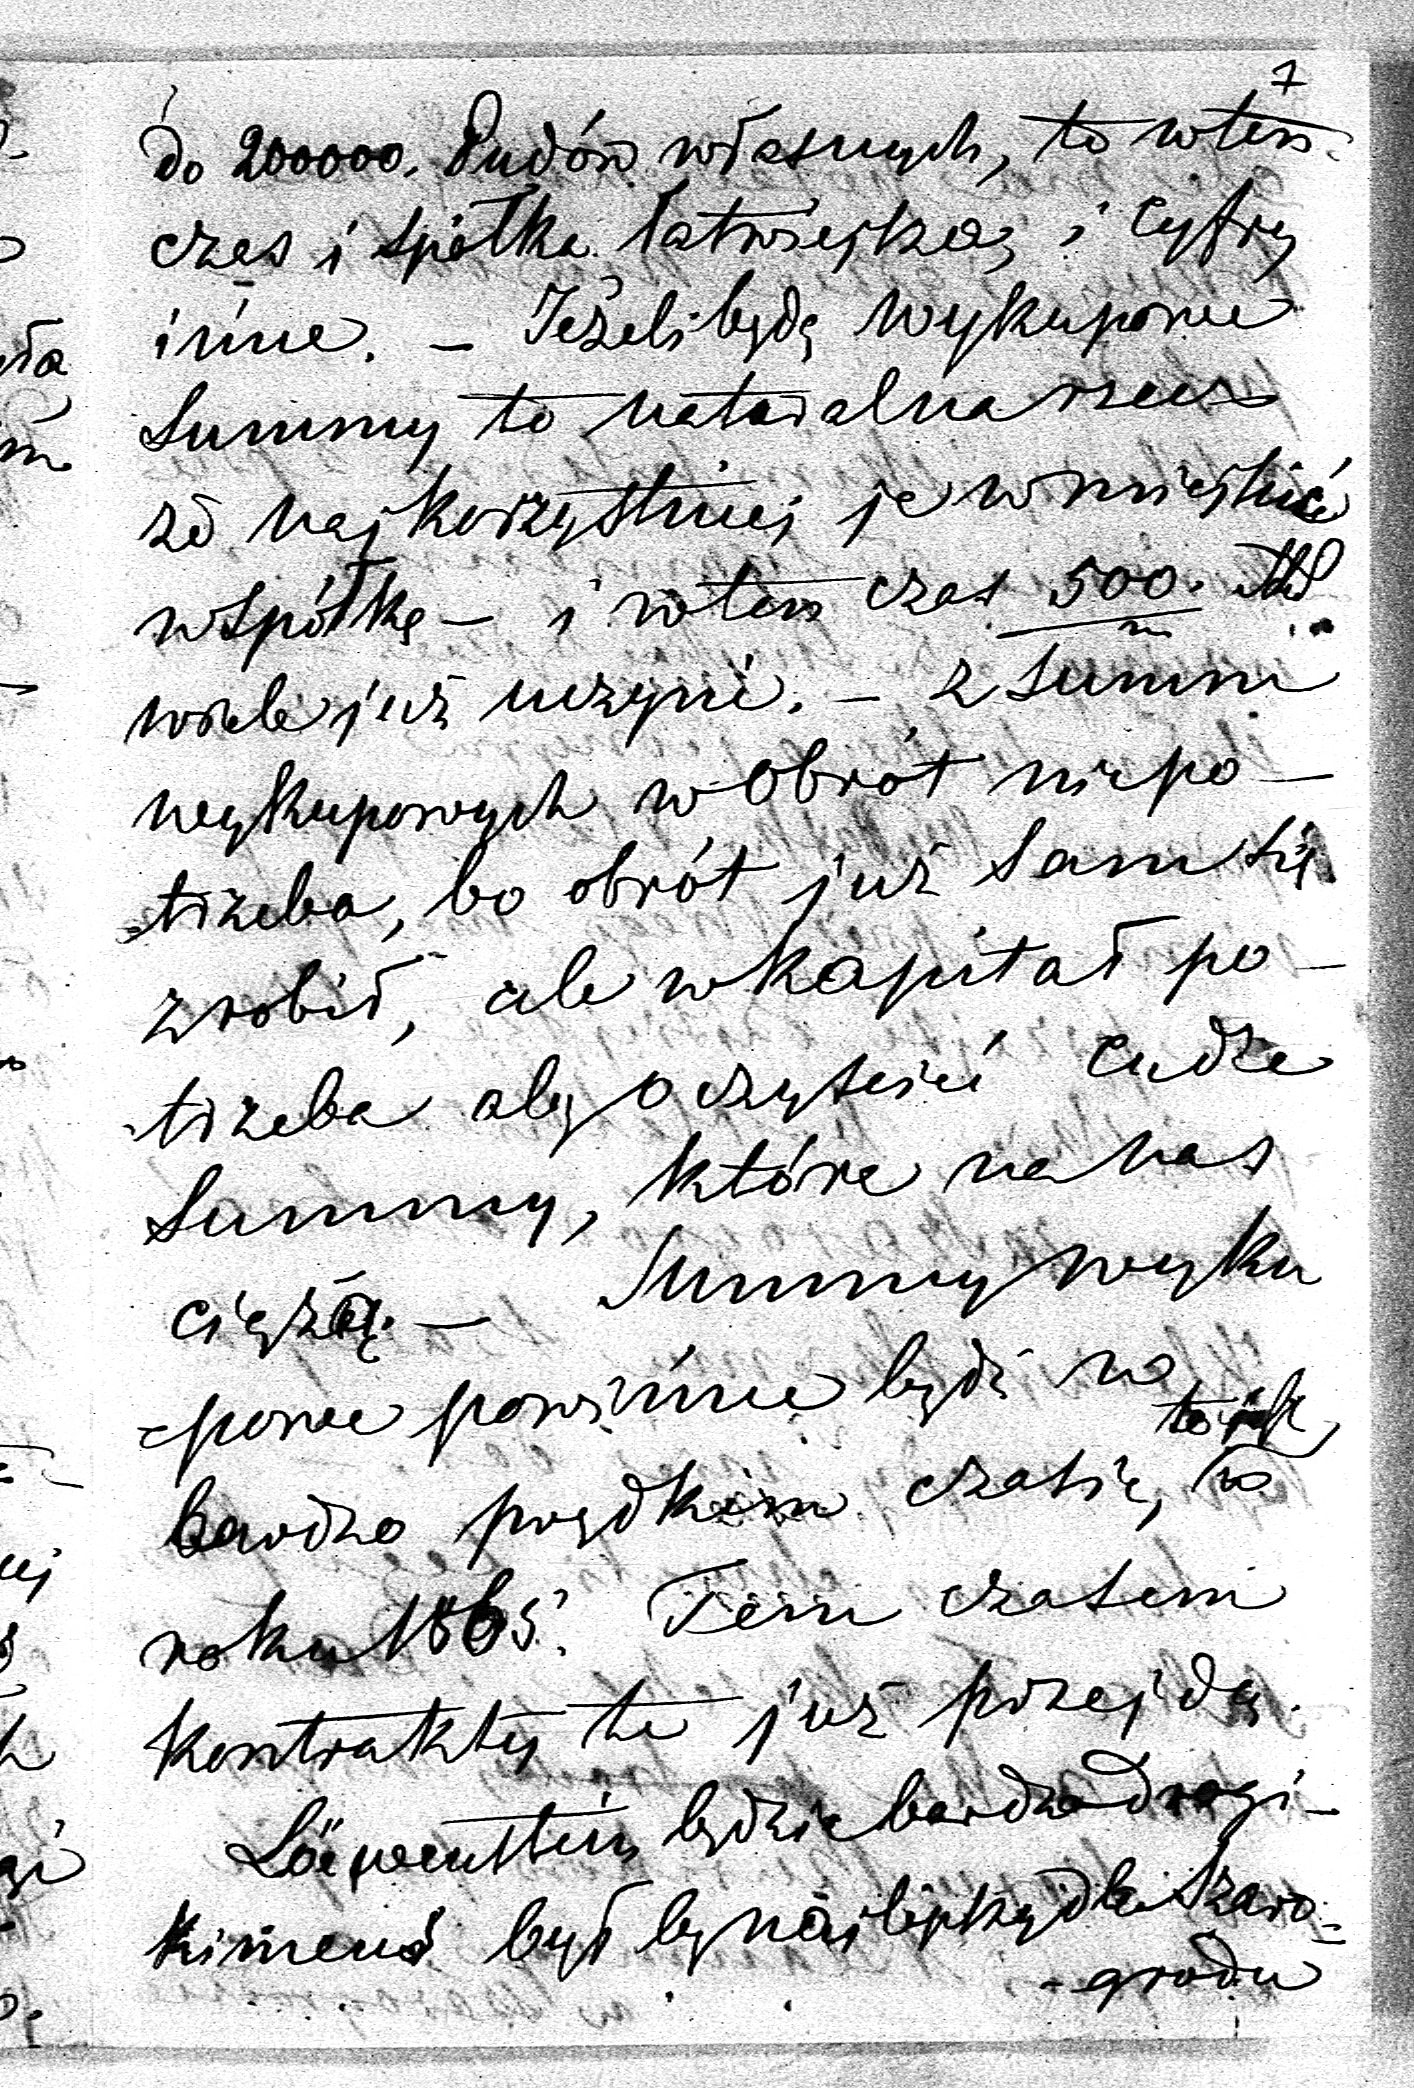 7
do 200000. Pudów własnych, to wten
czas i spółka łatwiejsza, i cyfry
inne. — Jeżeli będą wykupowe
Summy to naturalna rzecz
że najkorzystniej je wmieścić
współkę — i wten czas 500.
wiele już uczyni. — z Summ
wykupowych w obrót niepo-
trzeba, bo obrót już sam się
zrobił, ale w kapitał po-
trzeba aby oczyścić cudze
Summy, które na nas
ciężą. — Summy wyku
-powe powinne bydź w
bardzo prędkim czasie, to jest w
roku 1865. Tem czasem
kontrakty te już przejdą.
Löewenstein będzie bardzo drogi —
Kimens był by najlepszy dla Szaro-
-grodu